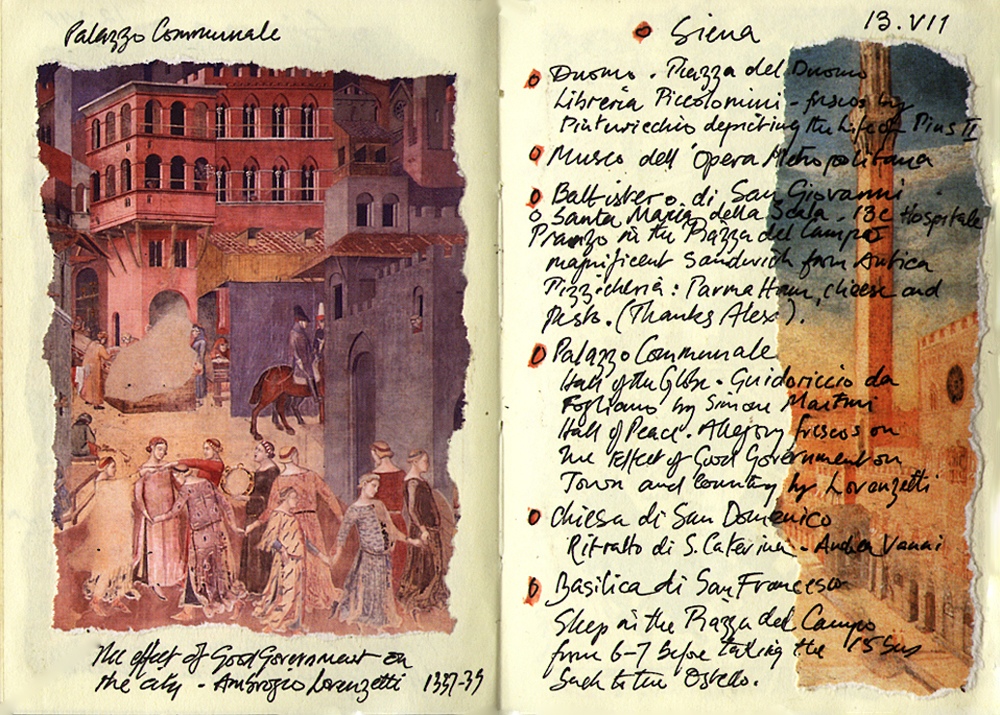 Palazzo Communale
The effect of Good Government on
the city - Ambrogio Loranzetti 1337-39
13.VII
Siena
Duomo - Piazza del Duomo
Libreria Piccolomini - frescos by
Pinturicchio depicting the Life of Pius II
Museo dell'Opera Metropolitana
Battistero di San Giovanni
Santa Maria della Scala - 13c Hospitale
Pranzo in the Piazza del Campo
magnificent sandwich from Antica
Pizzicheria: Parma Ham, cheese and
Pesto. (Thanks Alex).
Palazzo Communale
Hall of the Globe - Guidoriccio da
Fogliano by Simone Martini
Hall of Peace - Allegory frescos on
the Effect of Good Government on
Town and Country by Loranzetti
Chiesa di San Domenico
Ritratto di S. Caterina - Andrea Vanni
Basilica di San Francesco
Sleep in the Piazza del Campo
from 6-7 before taking the 15 bus
back to the Ostello.